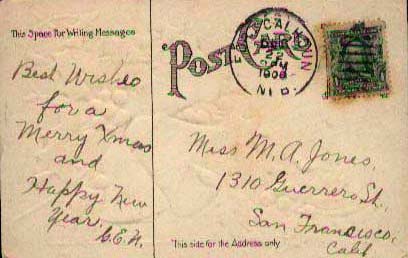 This Space For Writing Messages
Best Wishes
for a
Merry Xmas
and
Happy New
Year.
G.E.N.
POST CARD
FORT CALHOUN
DEC
22
1909
Miss M. A. Jones,
1310 Guerrero St.,
San Francisco,
Calif
This side for the Address only